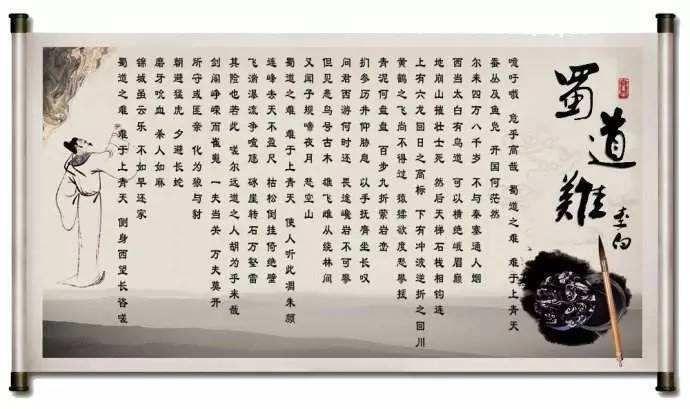 蜀道難
李白
噫吁哦 危乎高哉 蜀道之难 难于上青天
蚕丛及鱼凫 开国何茫然
尔来四万八千岁 不与秦塞通人烟
西当太白有鸟道 可以横绝峨眉巅
地崩山摧壮士死 然后天梯石栈相钩连
上有六龙回日之高标 下有冲波逆折之回川
黄鹤之飞尚不得过 猿猱欲度愁攀援
青泥何盘盘 百步九折萦岩峦
扪参历井仰胁息 以手抚膺坐长叹
问君西游何时还 畏途巉岩不可攀
但见悲鸟号古木 雄飞雌从绕林间
又闻子规啼夜月 愁空山
蜀道之难 难于上青天 使人听此凋朱颜
连峰去天不盈尺 枯松倒挂倚绝壁
飞湍瀑流争喧豗 砯崖转石万壑雷
其险也若此 嗟尔远道之人胡为乎来哉
剑阁峥嵘而崔嵬 一夫当关 万夫莫开
所守或匪亲 化为狼与豺
朝避猛虎 夕避长蛇
磨牙吮血 杀人如麻
锦城虽云乐 不如早还家
蜀道之难 难于上青天 侧身西望长咨嗟